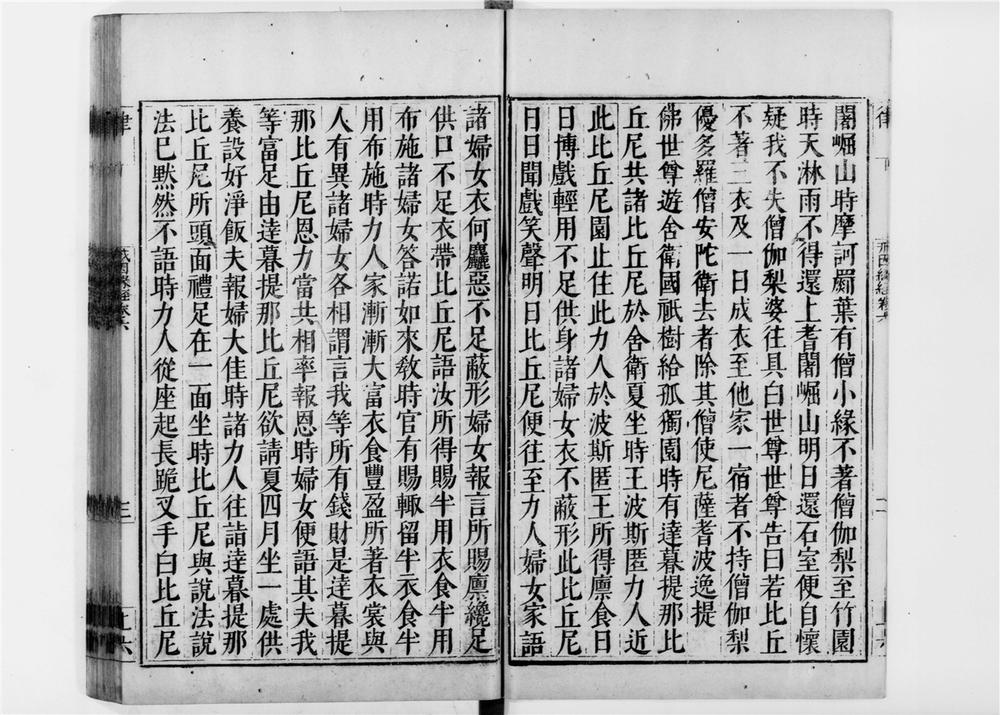 闍崛山時摩訶罽葉有僧小緣不著僧伽梨至竹園
時天淋雨不得還上耆闍崛山明日還石室便自懷
疑我不失僧伽梨婆往具白世尊世尊告曰若比丘
不著三衣及一日成衣至他家一宿者不持僧伽梨
優多羅僧安陀衛去者除其僧使尼薩耆波逸提
佛世尊遊舍衛國祇樹給孤獨園時有達暮提那比
丘尼共諸比丘尼於舍衛夏坐時王波斯匿力人近
此比丘尼園止住此力人於波斯匿王所得廪食日
日博戲輕用不足供身諸婦女衣不蔽形此比丘尼
日日聞戲笑聲明日比丘尼便往至力人婦女家語
諸婦女衣何麤惡不足蔽形婦女報言所賜廪纔足
供口不足衣帶比丘尼語汝所得賜半用衣食半用
布施諸婦女答諾如來敎時官有賜輙留半衣食半
用布施時力人家漸漸大富衣食豐盈所著衣裳與
人有異諸婦女各相謂言我等所有錢財是達暮提
那比丘尼恩力當共相率報恩時婦女便語其夫我
等富足由達暮提那比丘尼欲請夏四月坐一處供
養設好淨飯夫報婦大佳時諸力人往詣達暮提那
比丘尼所頭面禮足在一面坐時比丘尼與說法說
法已黙然不語時力人從座起長跪叉手白比丘尼
律
三